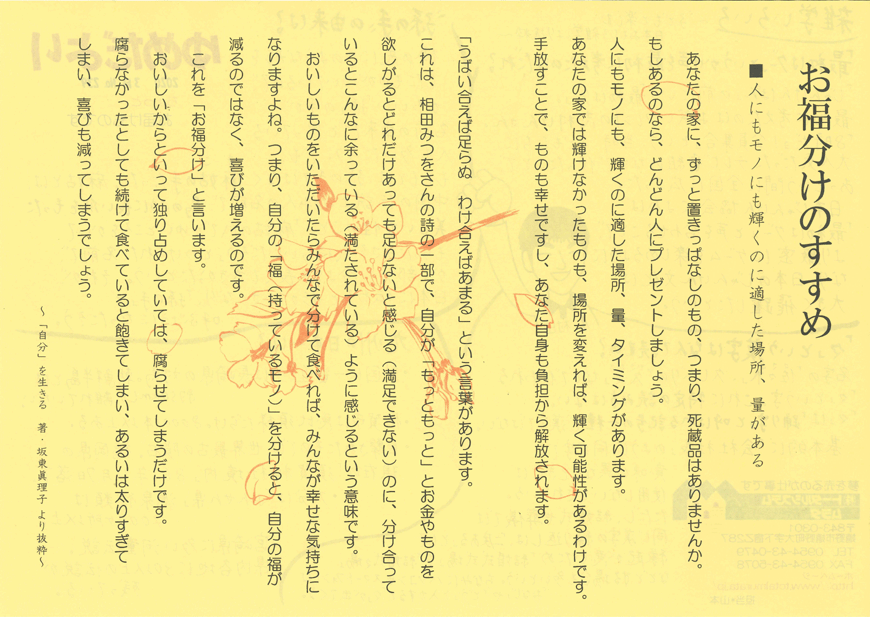 お福分けのすすめ
■人にもモノにも輝くのに適した場所、量がある
あなたの家に、ずっと置きっぱなしのもの、つまり、死蔵品はありませんか。
もしあるのなら、どんどん人にプレゼントしましょう。
人にもモノにも、輝くのに適した場所、量、タイミングがあります。
あなたの家では輝けなかったものも、場所を変えれば、輝く可能性があるわけです。
手放すことで、ものも幸せですし、あなた自身も負担から解放されます。
「うばい合えば足らぬ　わけ合えばあまる」という言葉があります。
これは、相田みつをさんの詩の一部で、自分が「もっともっと」とお金やものを
欲しがるとどれだけあっても足りないと感じる（満足できない）のに、分け合って
いるとこんなに余っている（満たされている）ように感じるという意味です。
おいしいものをいただいたらみんなで分けて食べれば、みんなが幸せな気持ちに
なりますよね。つまり、自分の「福（持っているモノ）」を分けると、自分の福が
減るのではなく、喜びが増えるのです。
これを「お福分け」と言います。
おいしいからといって独り占めしていては、腐らせてしまうだけです。
腐らなかったとしても続けて食べていると飽きてしまい、あるいは太りすぎて
しまい、喜びも減ってしまうでしょう。
～「自分」を生きる　著・坂東眞理子　より抜粋～